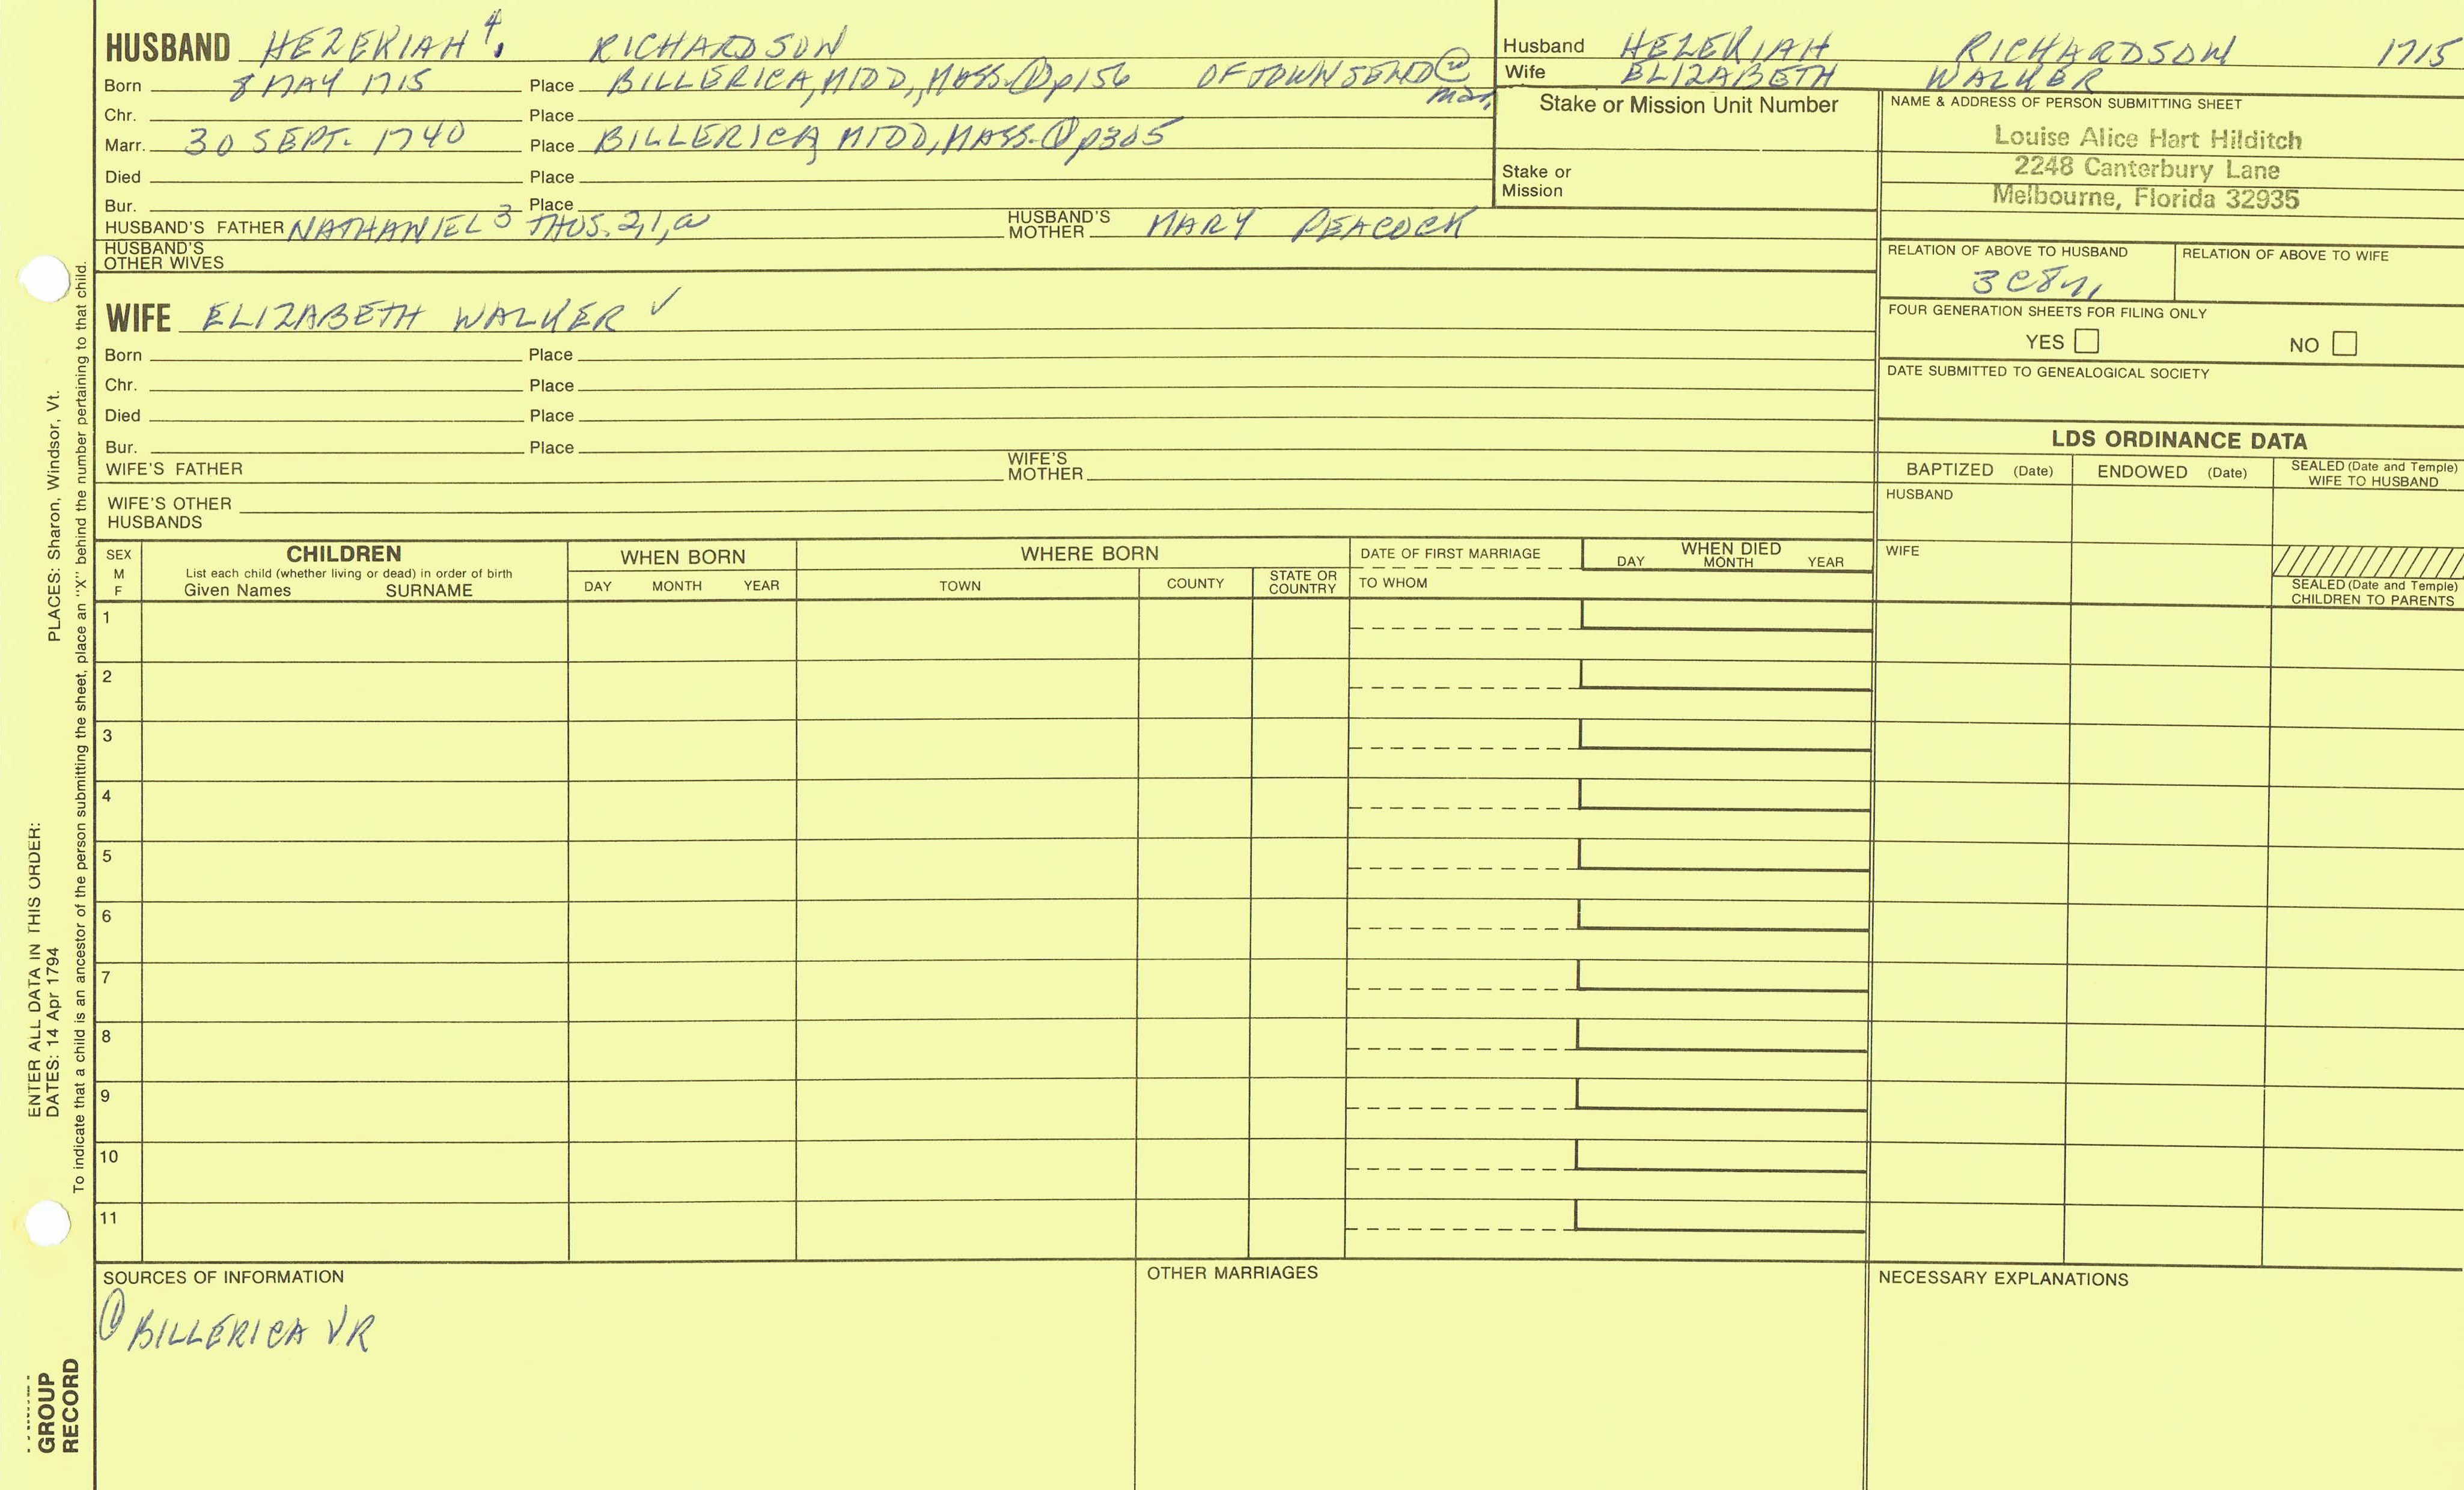 HUSBAND HEZEKIAH 4. RICHARDSON
Born 8 MAY 1715 Place BILLERICA, MIDD., MASS. ① p156 OF TOWNSEND @ mar.
Chr. Place
Marr. 30 SEPT. 1740 Place BILLERICA, MIDD, MASS. ① p305
Died Place
Bur. Place
HUSBAND'S FATHER NATHANIEL 3 THOS. 2, 1, a HUSBAND'S MOTHER MARY PEACOCK
HUSBAND'S OTHER WIVES
WIFE ELIZABETH WALKER ✓
Born Place
Chr. Place
Died Place
Bur. Place
WIFE'S FATHER WIFE'S MOTHER
WIFE'S OTHER HUSBANDS
Husband HEZEKIAH RICHARDSON 1715
Wife ELIZABETH WALKER
Stake or Mission Unit Number
Stake or Mission
NAME & ADDRESS OF PERSON SUBMITTING SHEET
Louise Alice Hart Hilditch
2248 Canterbury Lane
Melbourne, Florida 32935
RELATION OF ABOVE TO HUSBAND RELATION OF ABOVE TO WIFE
FOUR GENERATION SHEETS FOR FILING ONLY
YES NO
DATE SUBMITTED TO GENEALOGICAL SOCIETY
LDS ORDINANCE DATA
BAPTIZED (Date) ENDOWED (Date) SEALED (Date and Temple) WIFE TO HUSBAND
HUSBAND
WIFE
SEALED (Date and Temple) CHILDREN TO PARENTS
SEX M F
CHILDREN
List each child (whether living or dead) in order of birth
Given Names SURNAME
WHEN BORN
DAY MONTH YEAR
WHERE BORN
TOWN COUNTY STATE OR COUNTRY
DATE OF FIRST MARRIAGE
TO WHOM
WHEN DIED
DAY MONTH YEAR
1
2
3
4
5
6
7
8
9
10
11
SOURCES OF INFORMATION
① BILLERICA VR
OTHER MARRIAGES
NECESSARY EXPLANATIONS
ENTER ALL DATA IN THIS ORDER:
DATES: 14 Apr 1794 PLACES: Sharon, Windsor, Vt.
To indicate that a child is an ancestor of the person submitting the sheet, place an "X" behind the number pertaining to that child.
GROUP
RECORD